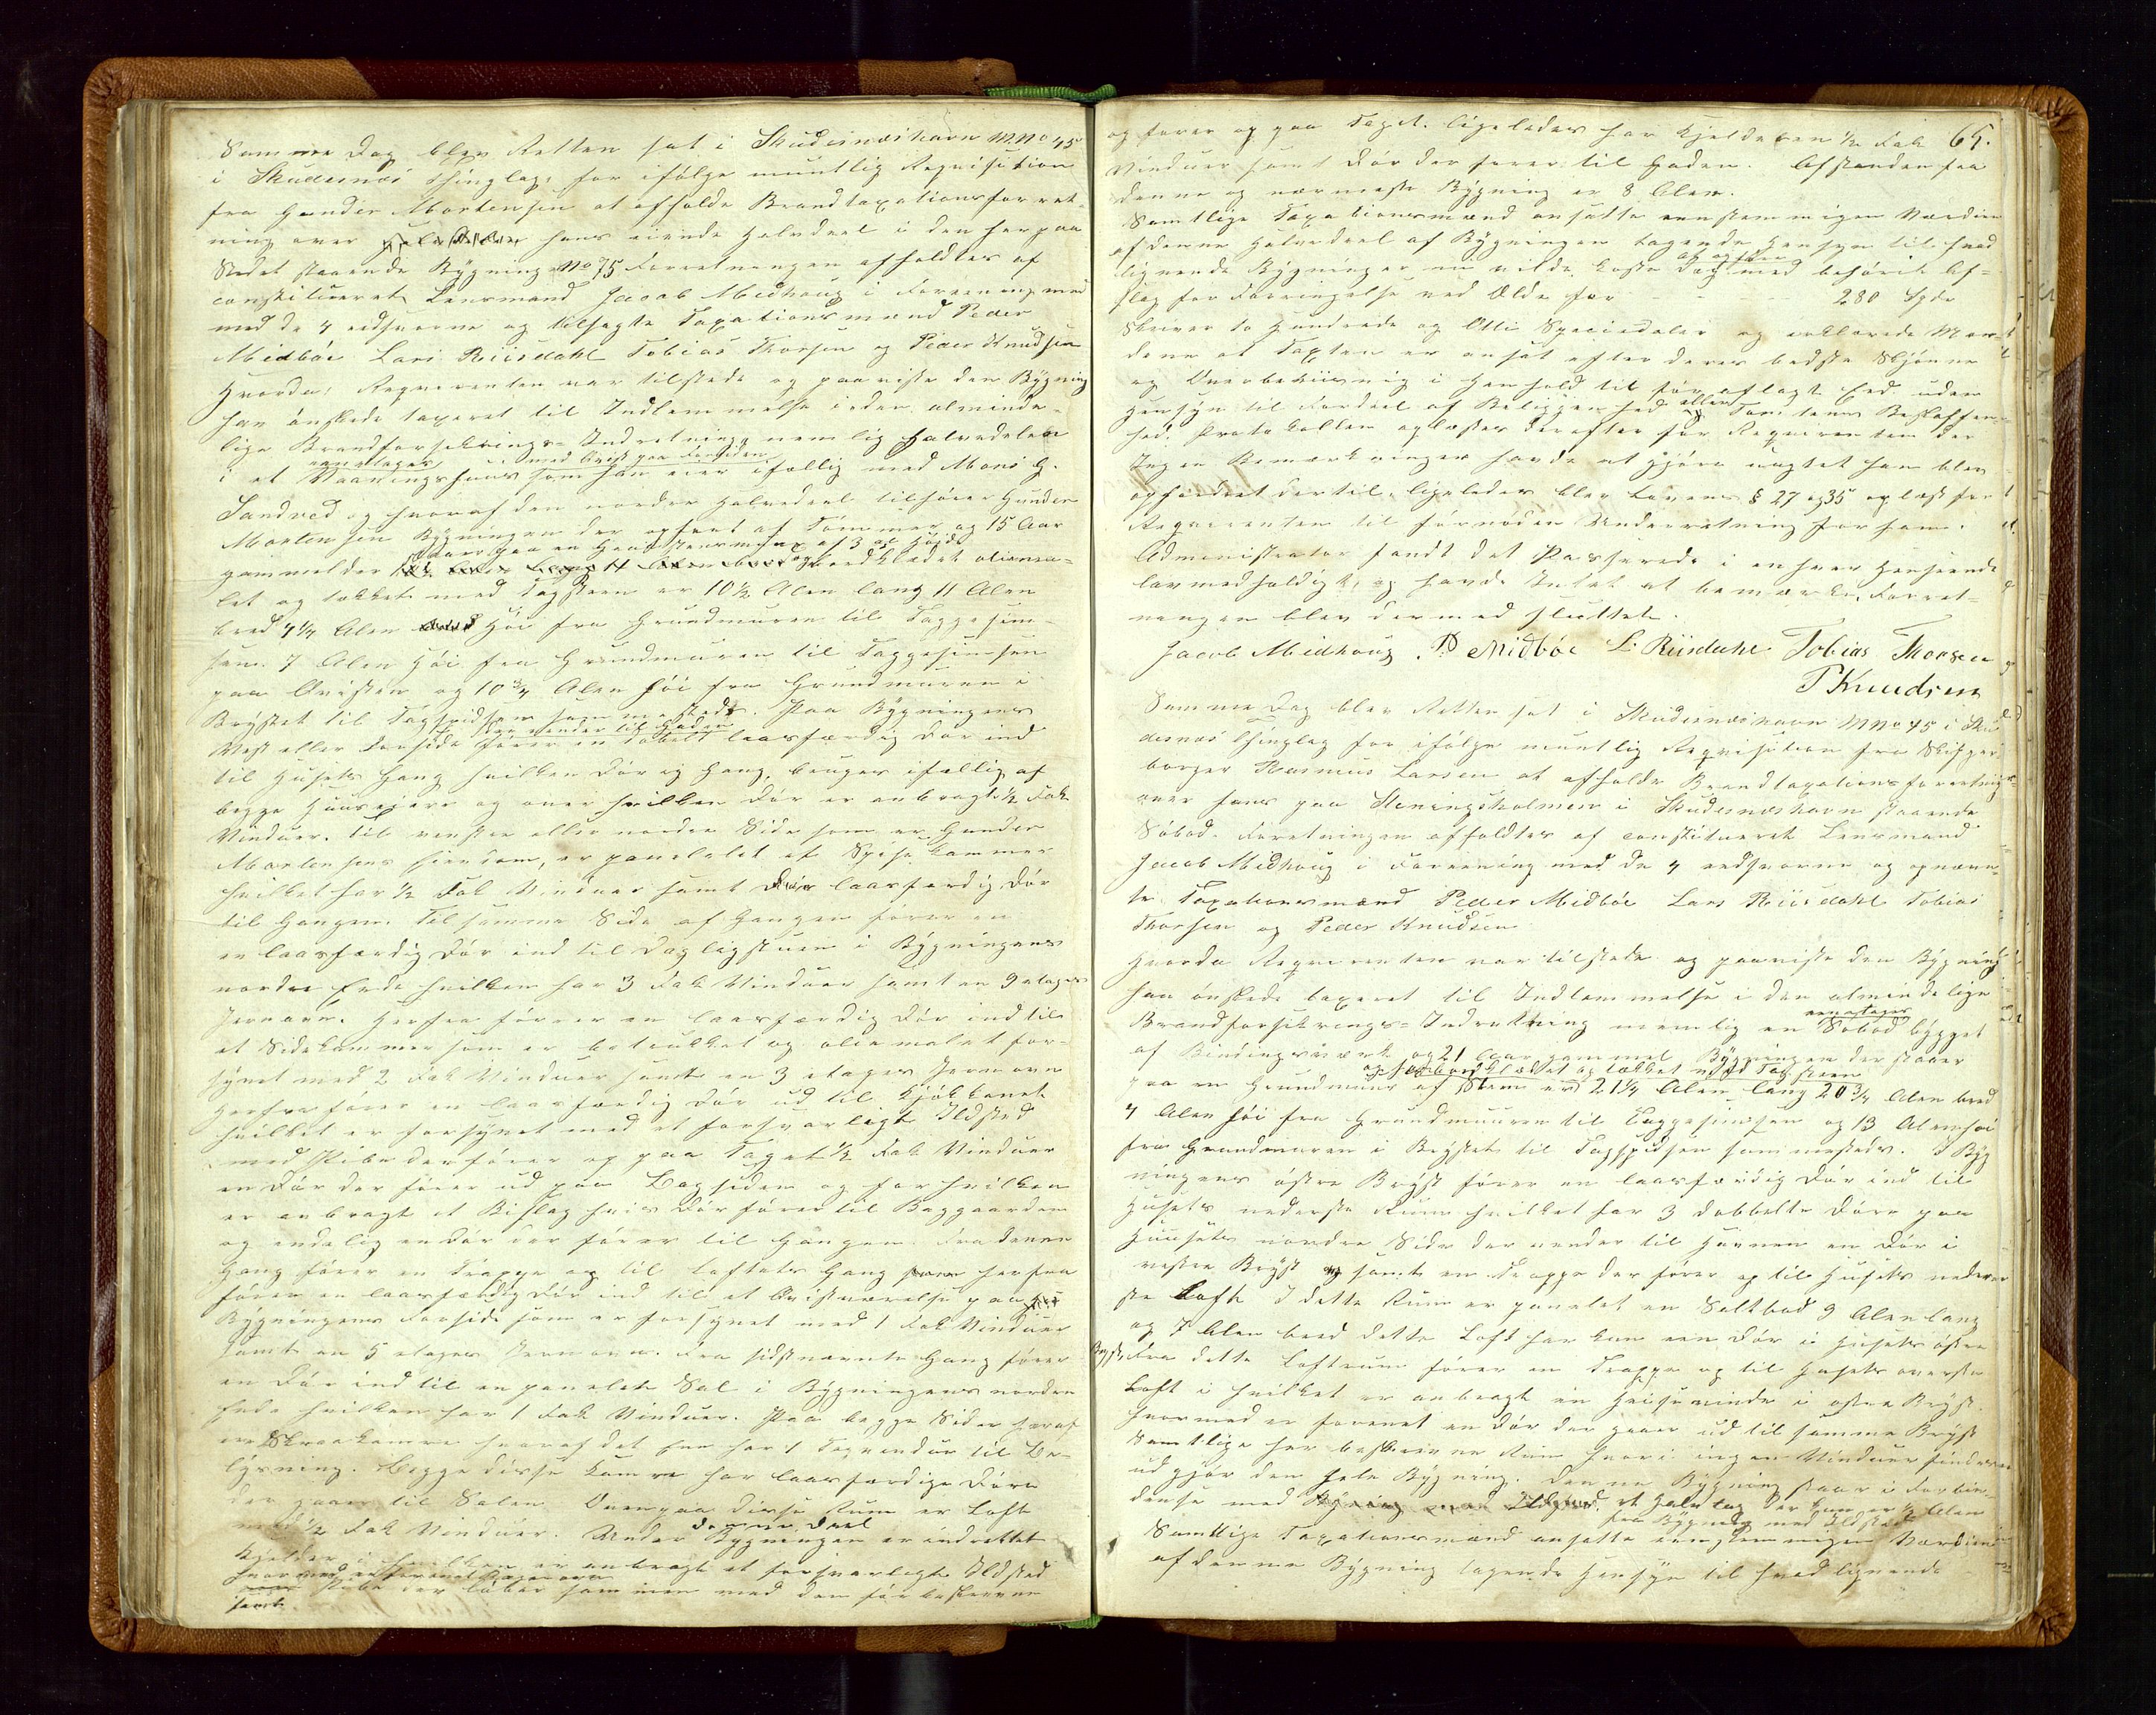 Samme Dag blev Retten sat i Skudesnæshavn MNo 45
i Skudesnæs Thinglag for ifølge muntlig Reqvisition
fra Gunder Mortensen at afholde Brandtaxationsforret-
ning over hans eiende Halvdeel i den her paa
Stedet staaende Bygning No 75 Forretningen afholdtes af
constitueret Lensmand Jacob Midhoug i Forening med
med de 4 eedsvorne og tilsagte Taxationsmænd Peder
Midbøe Lars Riisdahl Tobias Thorsen og Peder Knudsen
Hvorda Reqvirenten var tilstede og paaviste den Bygning
han ønskede taxeret til Indlemmelse i den alminde-
lige Brandforsikrings-Indretning, nemlig Halvdelen
eenetages med Qvist paa Forsiden
i et Vaaningshuus som han eier ifællig med Mons G.
Sandved og hvoraf den nordre Halvdeel tilhører Gunder
Mortensen Bygningen der opført af Tømmer og 15 Aar
staaer paa en Graasteensmuur af 3 al: Høide
gammel der bordklædet oliema-
let og tækket med Tagsteen er 10½ Alen lang 11 Alen
bred 4¼ Alen Høi fra Grundmuren til Taggesim-
sen. 7 Alen Høi fra Grundmuren til Taggesimsen
paa Qvisten og 10¾ Alen høi fra Grundmuren i
Brystet til Tagspidsen sammesteds. Paa Bygningens
der vender til Gaden
Vest eller Forside fører en dobelt laasfærdig Dør ind
til Husets Gang hvilken Dør og Gang bruges ifællig af
begge Huuseiere og over hvilken Dør er anbragt ½ Fak
Vinduer. Til venstre eller nordre Side som er Gunder
Mortensens Eiendom, er panelet et Spisekammer
hvilket har ½ Fak Vinduer samt laasfærdig Dør
til Gangen. Til samme Side af Gangen fører en
en laasfærdig Dør ind til Dagligstuen i Bygningens
nordre Ende hvilken har 3 Fak Vinduer samt en 3 etages
Jernovn. Herfra fører en laasfærdig Dør ind til
et Sidekammer som er betrukket og oliemalet for-
synet med 2 Fak Vinduer samt en 3 etages Jernovn
Herfra fører en laasfærdig Dør ud til Kjøkkenet
hvilket er forsynet med et forsvarligt Ildsted
med Pibe der fører op paa Taget ½ Fak Vinduer
en Dør der fører ud paa Bagsiden og for hvilken
er anbragt et Bislag hvis Dør fører til Baggaarden
og endelig en Dør der fører til Gangen. Fra denne
Gang fører en Trappe op til Loftets Gang herfra
fører en laasfærdig Dør ind til et Qvistværelse paa
Bygningens Forside som er forsynet med 1 Fak Vinduer
samt en 5 etages Jernovn. Fra sidstnævnte Gang fører
en Dør ind til en panelet Sal i Bygningens nordre
Ende hvilken har 1 Fak Vinduer. Paa begge Sider heraf
er Skraakamre hvoraf det ene har 1 Tagvindue til Be-
lysning. Begge disse Kamre har laasfærdige Døre
der gaaer til Salen Ovenpaa disse Rum er Loft
med ½ Fak Vinduer. Under denne Deel Bygningen er indrettet
Kjelder i hvilken er anbragt et forsvarligt Ildsted
hvormed er forenet Bagerovn
samt Pibe der løber sammen med den før beskrevne
65.
og fører op paa Taget. ligeledes har Kjelderen ½ Fak
Vinduer samt Dør der fører til Gaden. Afstanden fra
denne og nærmeste Bygning er 8 Alen.
Samtlige Taxationsmænd ansatte eenstemmigen Værdien
af denne Halvdeel af Bygningen tagende Hensyn til hvad
lignende Bygninger nu vilde koste dog med behørit Af-
slag for Forringelse ved Ælde for 280 Spd
skriver to Hundrede og Otti Speciedaler og erklærede Mæn-
dene at Taxten er ansat efter deres bedste Skjønne
og Overbeviisning i Henhold til før aflagt Eed uden
Hensyn til Fordeel af Beliggenhed eller Tomtens Beskaffen-
hed. Protokollen oplæstes derefter for Reqvirenten der
Ingen Bemærkninger havde at gjøre uagtet han blev
opfordret dertil. ligeledes blev Lovens § 27 og 35 oplæst for
Reqvirenten til fornøden Underretning for ham.
Administrator fandt det Passerede i enhver Henseende
lovmedholdigt, og havde Intet at bemærke. Forret-
ningen blev dermed sluttet.
Jacob Midhoug P. Midbøe L. Riisdahl Tobias Thorsen
P Knudsen
Samme Dag blev Retten sat i Skudesnæshavn MNo 45 i Sku
desnæs Thinglag for ifølge muntlig Reqvisition fra Skipper
borger Rasmus Larsen at afholde Brandtaxationsforretning
over hans paa Steiningsholmen i Skudesnæshavn staaende
Søbod. Forretningen afholdtes af constitueret Lensmand
Jacob Midhoug i Forening med de 4 eedsvorne og opnævn-
te Taxationsmænd Peder Midbøe Lars Riisdahl Tobias
Thorsen og Peder Knudsen
Hvorda Reqvirenten var tilstede og paaviste den Bygning
han ønskede taxeret til Indlemmelse i den almindelige
eenetages
Brandforsikrings-Indretning nemlig en Søbod bygget
af Bindingsværk og 21 Aar gammel Bygningen der staaer
er bordklædet og tækket med Tagsteen
paa en Grundmuur af Steen er 21¼ Alen lang 20¾ Alen bred
4 Alen høi fra Grundmuuren til Taggesimsen og 13 Alen høi
fra Grundmuren i Brystet til Tagspidsen sammesteds. I Byg
ningens østre Bryst fører en laasfærdig Dør ind til
Husets nederste Rum hvilket har 3 dobbelte Døre paa
Huusets nordre Side der vender til Havnen en Dør i
vestre Bryst samt en Trappe der fører op til Husets neder
ste Loft I dette Rum er panelet en Saltbod 9 Alen lang
og 7 Alen bred dette Loft har kun een Dør i Husets østre
Bryst, Fra dette Loftrum fører en Trappe op til Husets øverste
Loft i hvilket er anbragt en Heisevinde i østre Bryst.
hvormed er forenet en Dør der gaaer ud til samme Bryst
Samtlige her beskrevne Rum hvori ingen Vinduer findes
udgjør den hele Bygning. Denne Bygning staar i Forbin-
delse med et Halvtag der kun er ½ Alen
fra Bygning med Ildsted
Samtlige Taxationsmænd ansatte eenstemmigen Værdien
af denne Bygning tagende Hensyn til hvad lignende